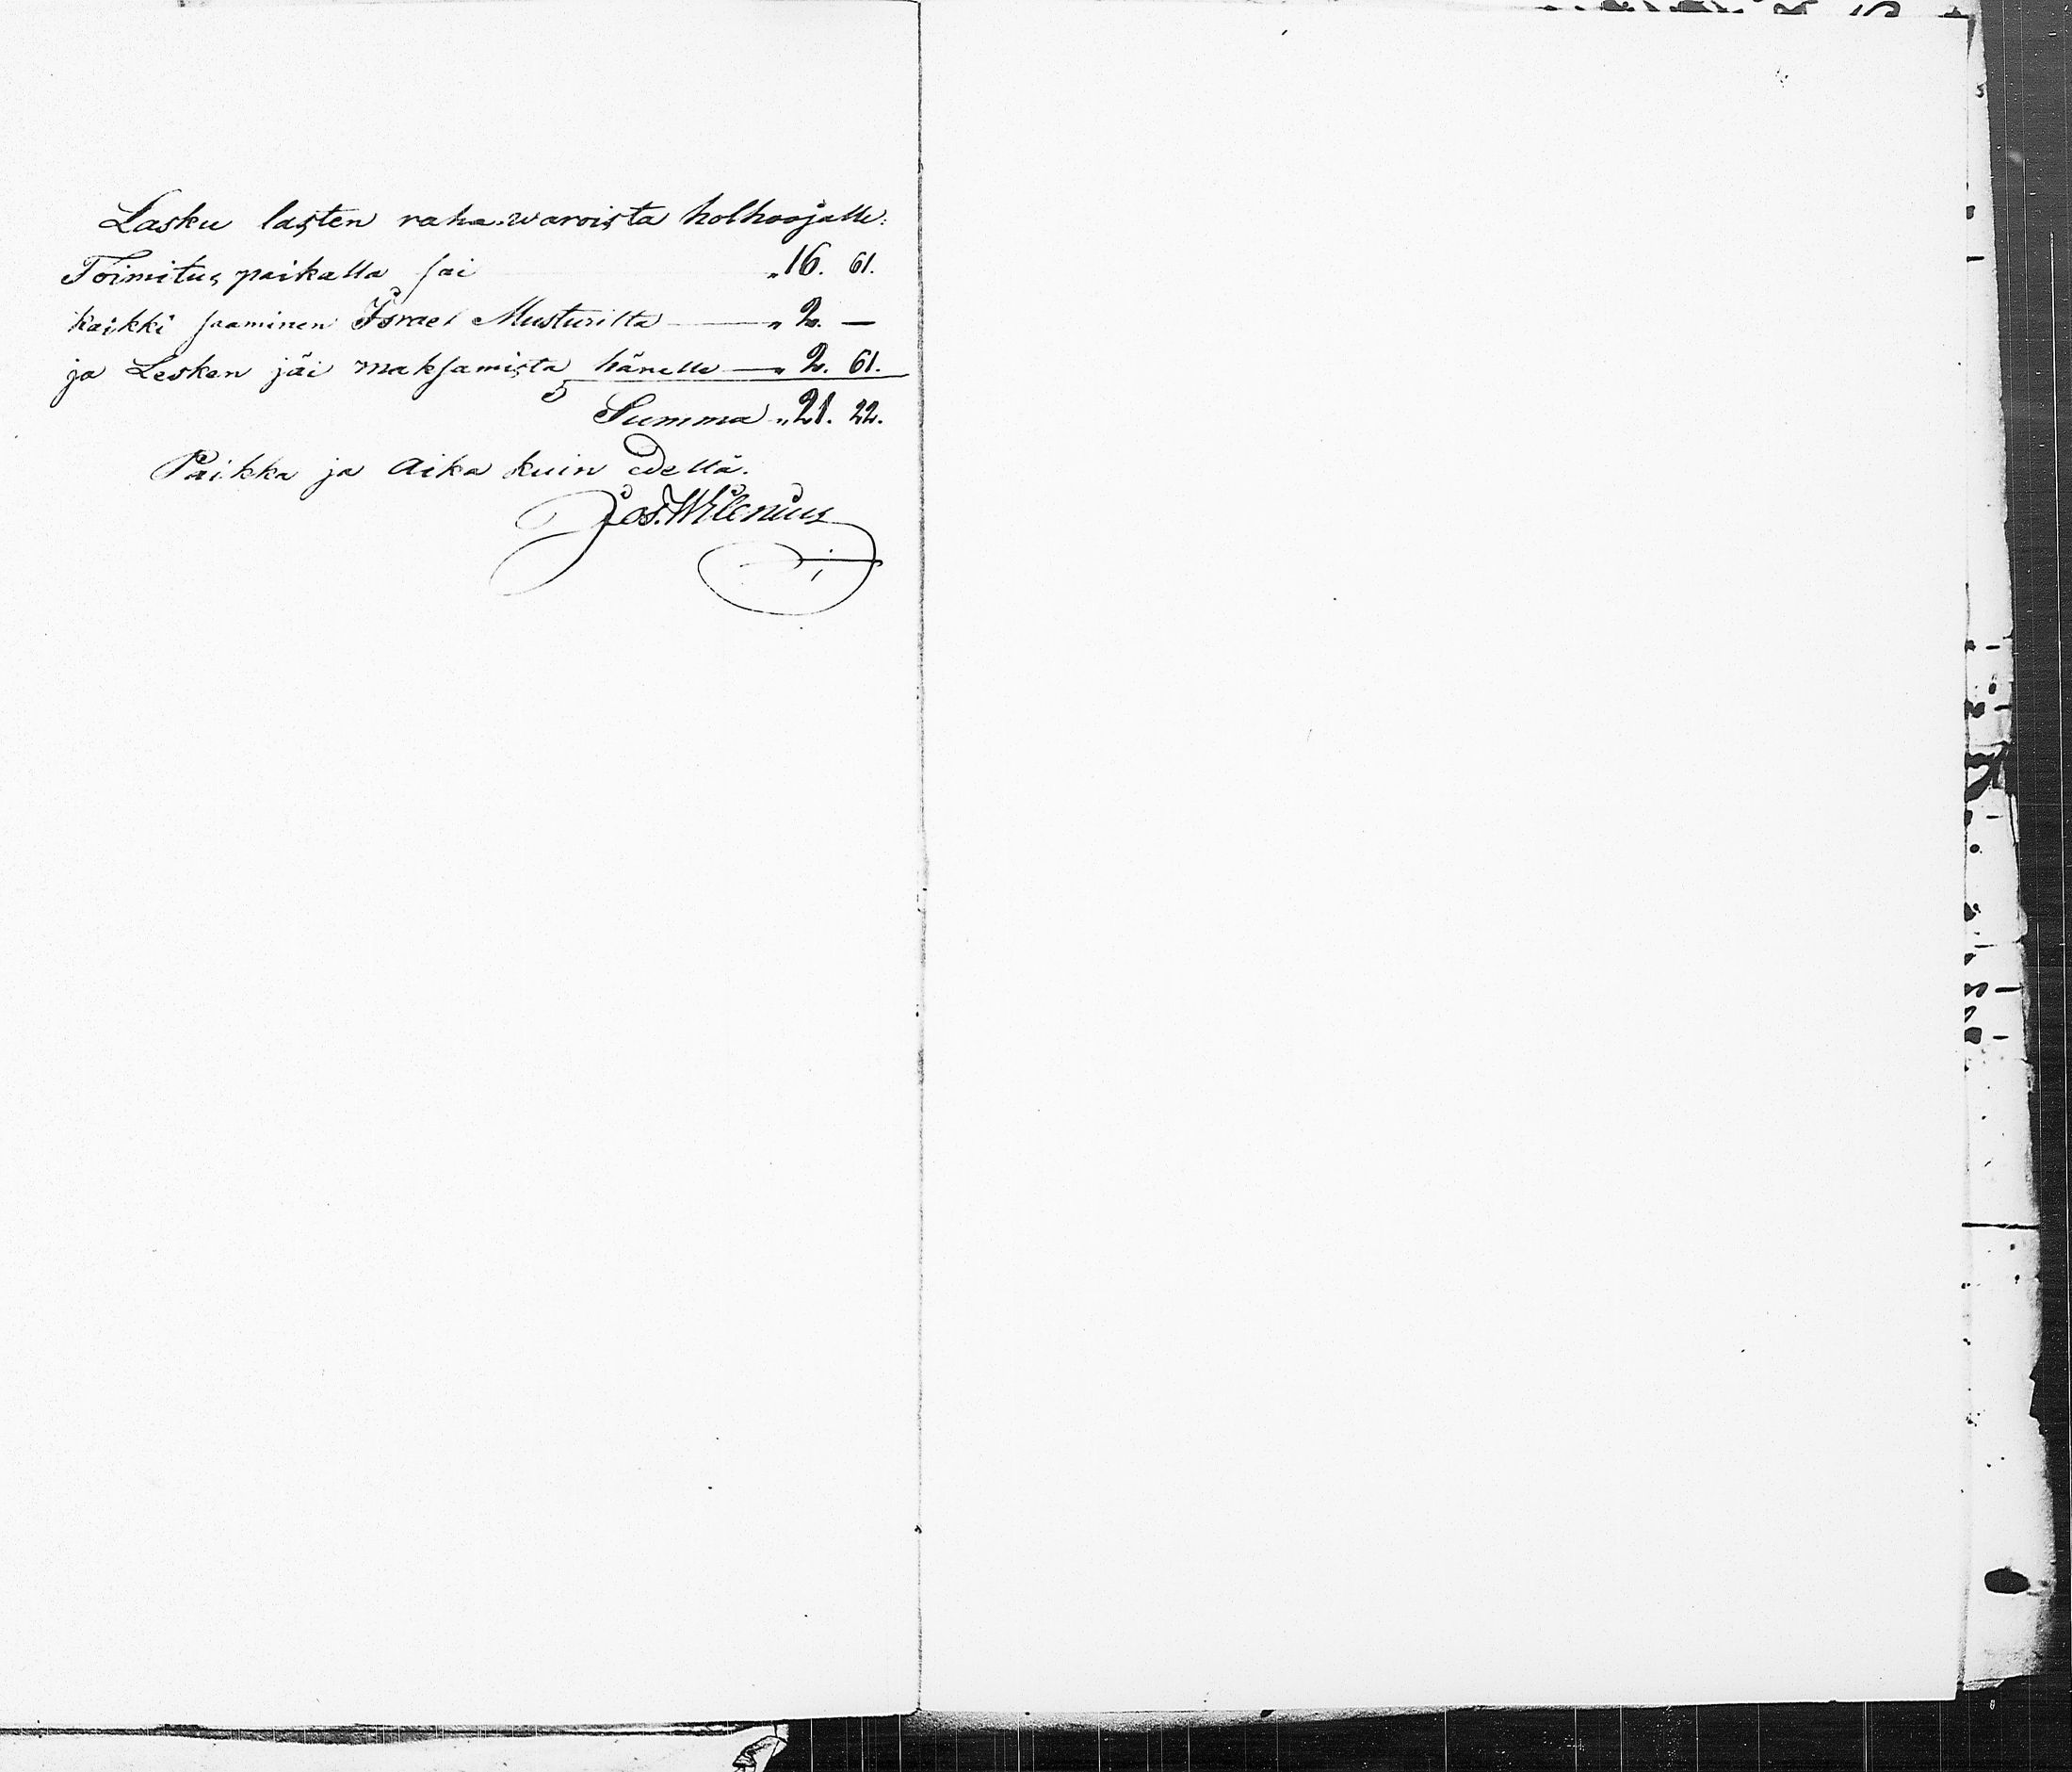 Lasku lasten raha-waroista holhoojalle:
Toimitus paikalla sai „ 16. 61.
kaikki saaminen Israel Musturilta — „ 2. —
ja Lesken jäi maksamista hänelle — „ 2. 61.
Summa „ 21. 22.
Paikka ja Aika kuin edellä.
Jos. Wilenius